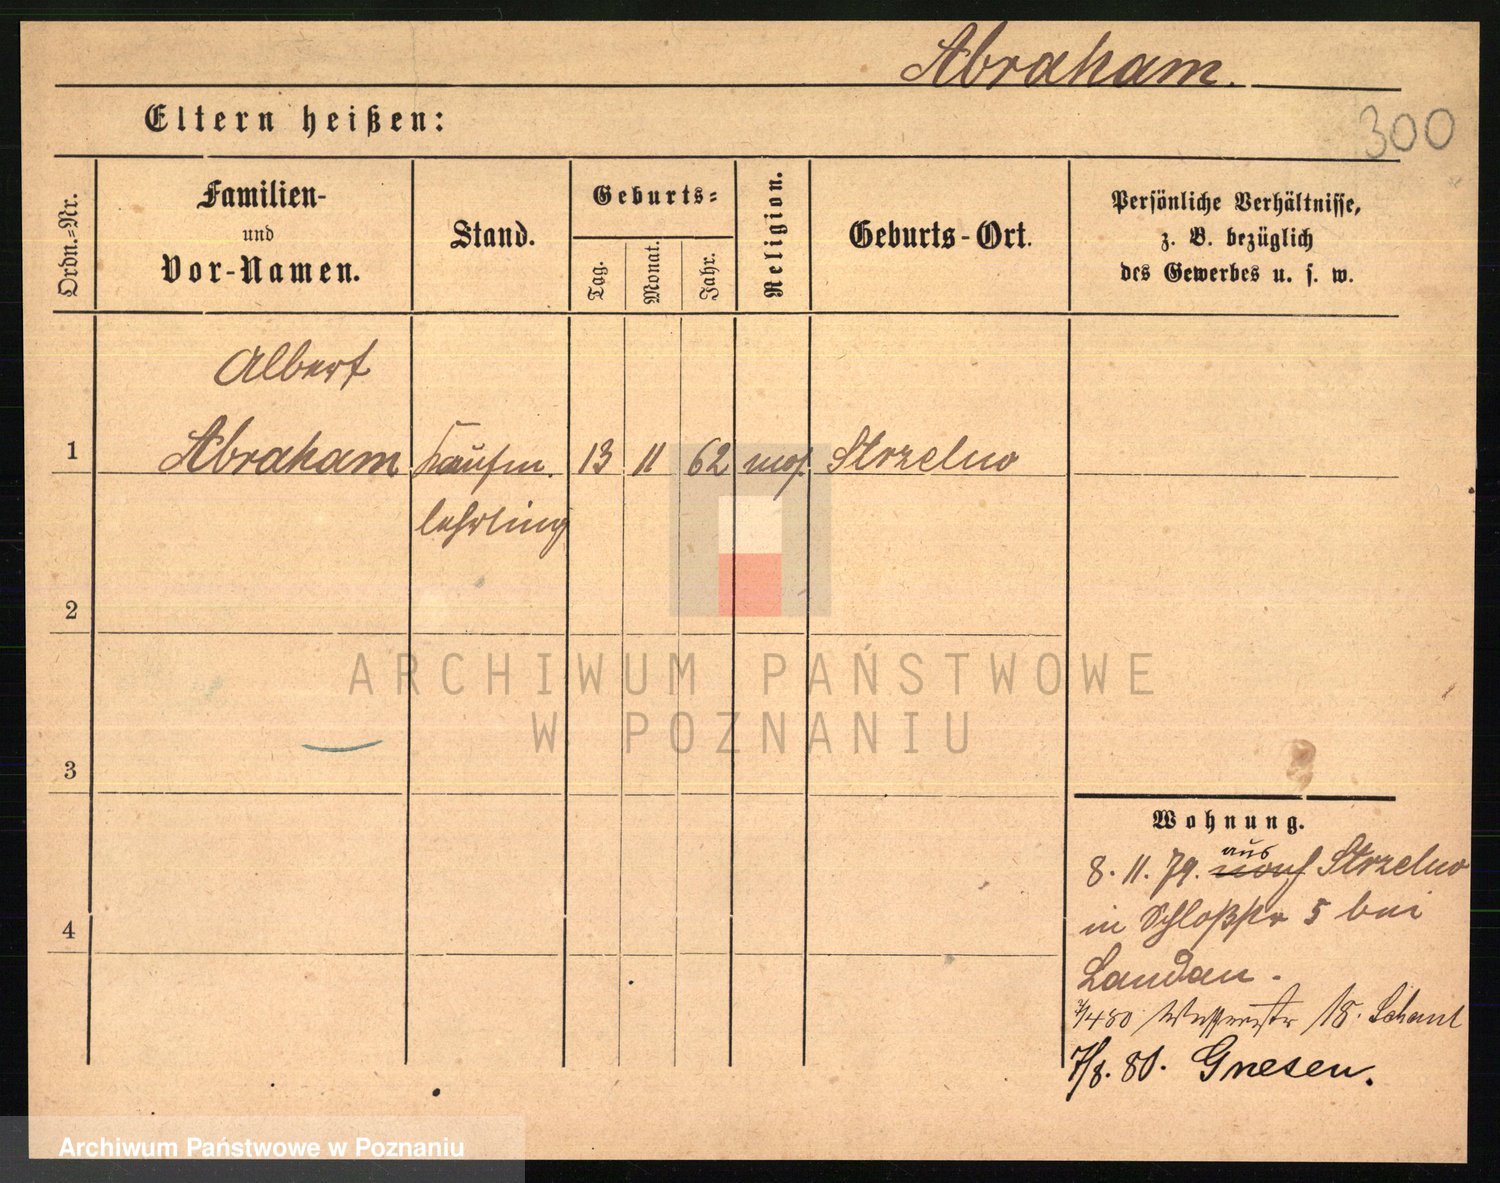 Abraham.
300
Eltern heißen:
Ordn.=Nr.
Familien-
und
Vor-Namen.
Stand.
Geburts=
Tag.
Monat.
Jahr.
Religion.
Geburts-Ort.
Persönliche Verhältnisse,
z. B. bezüglich
des Gewerbes u. s. w.
Albert
1 Abraham Kaufm. 13 11 62 mos. Strzelno
lehrling
2
ARCHIWUM PAŃSTWOWE
W POZNANIU
3
Wohnung.
aus
8. 11. 79. Strzelno
in Schloßstr 5 bei
4
Landau.
18.
7/8. 80. Gnesen.
Archiwum Państwowe w Poznaniu